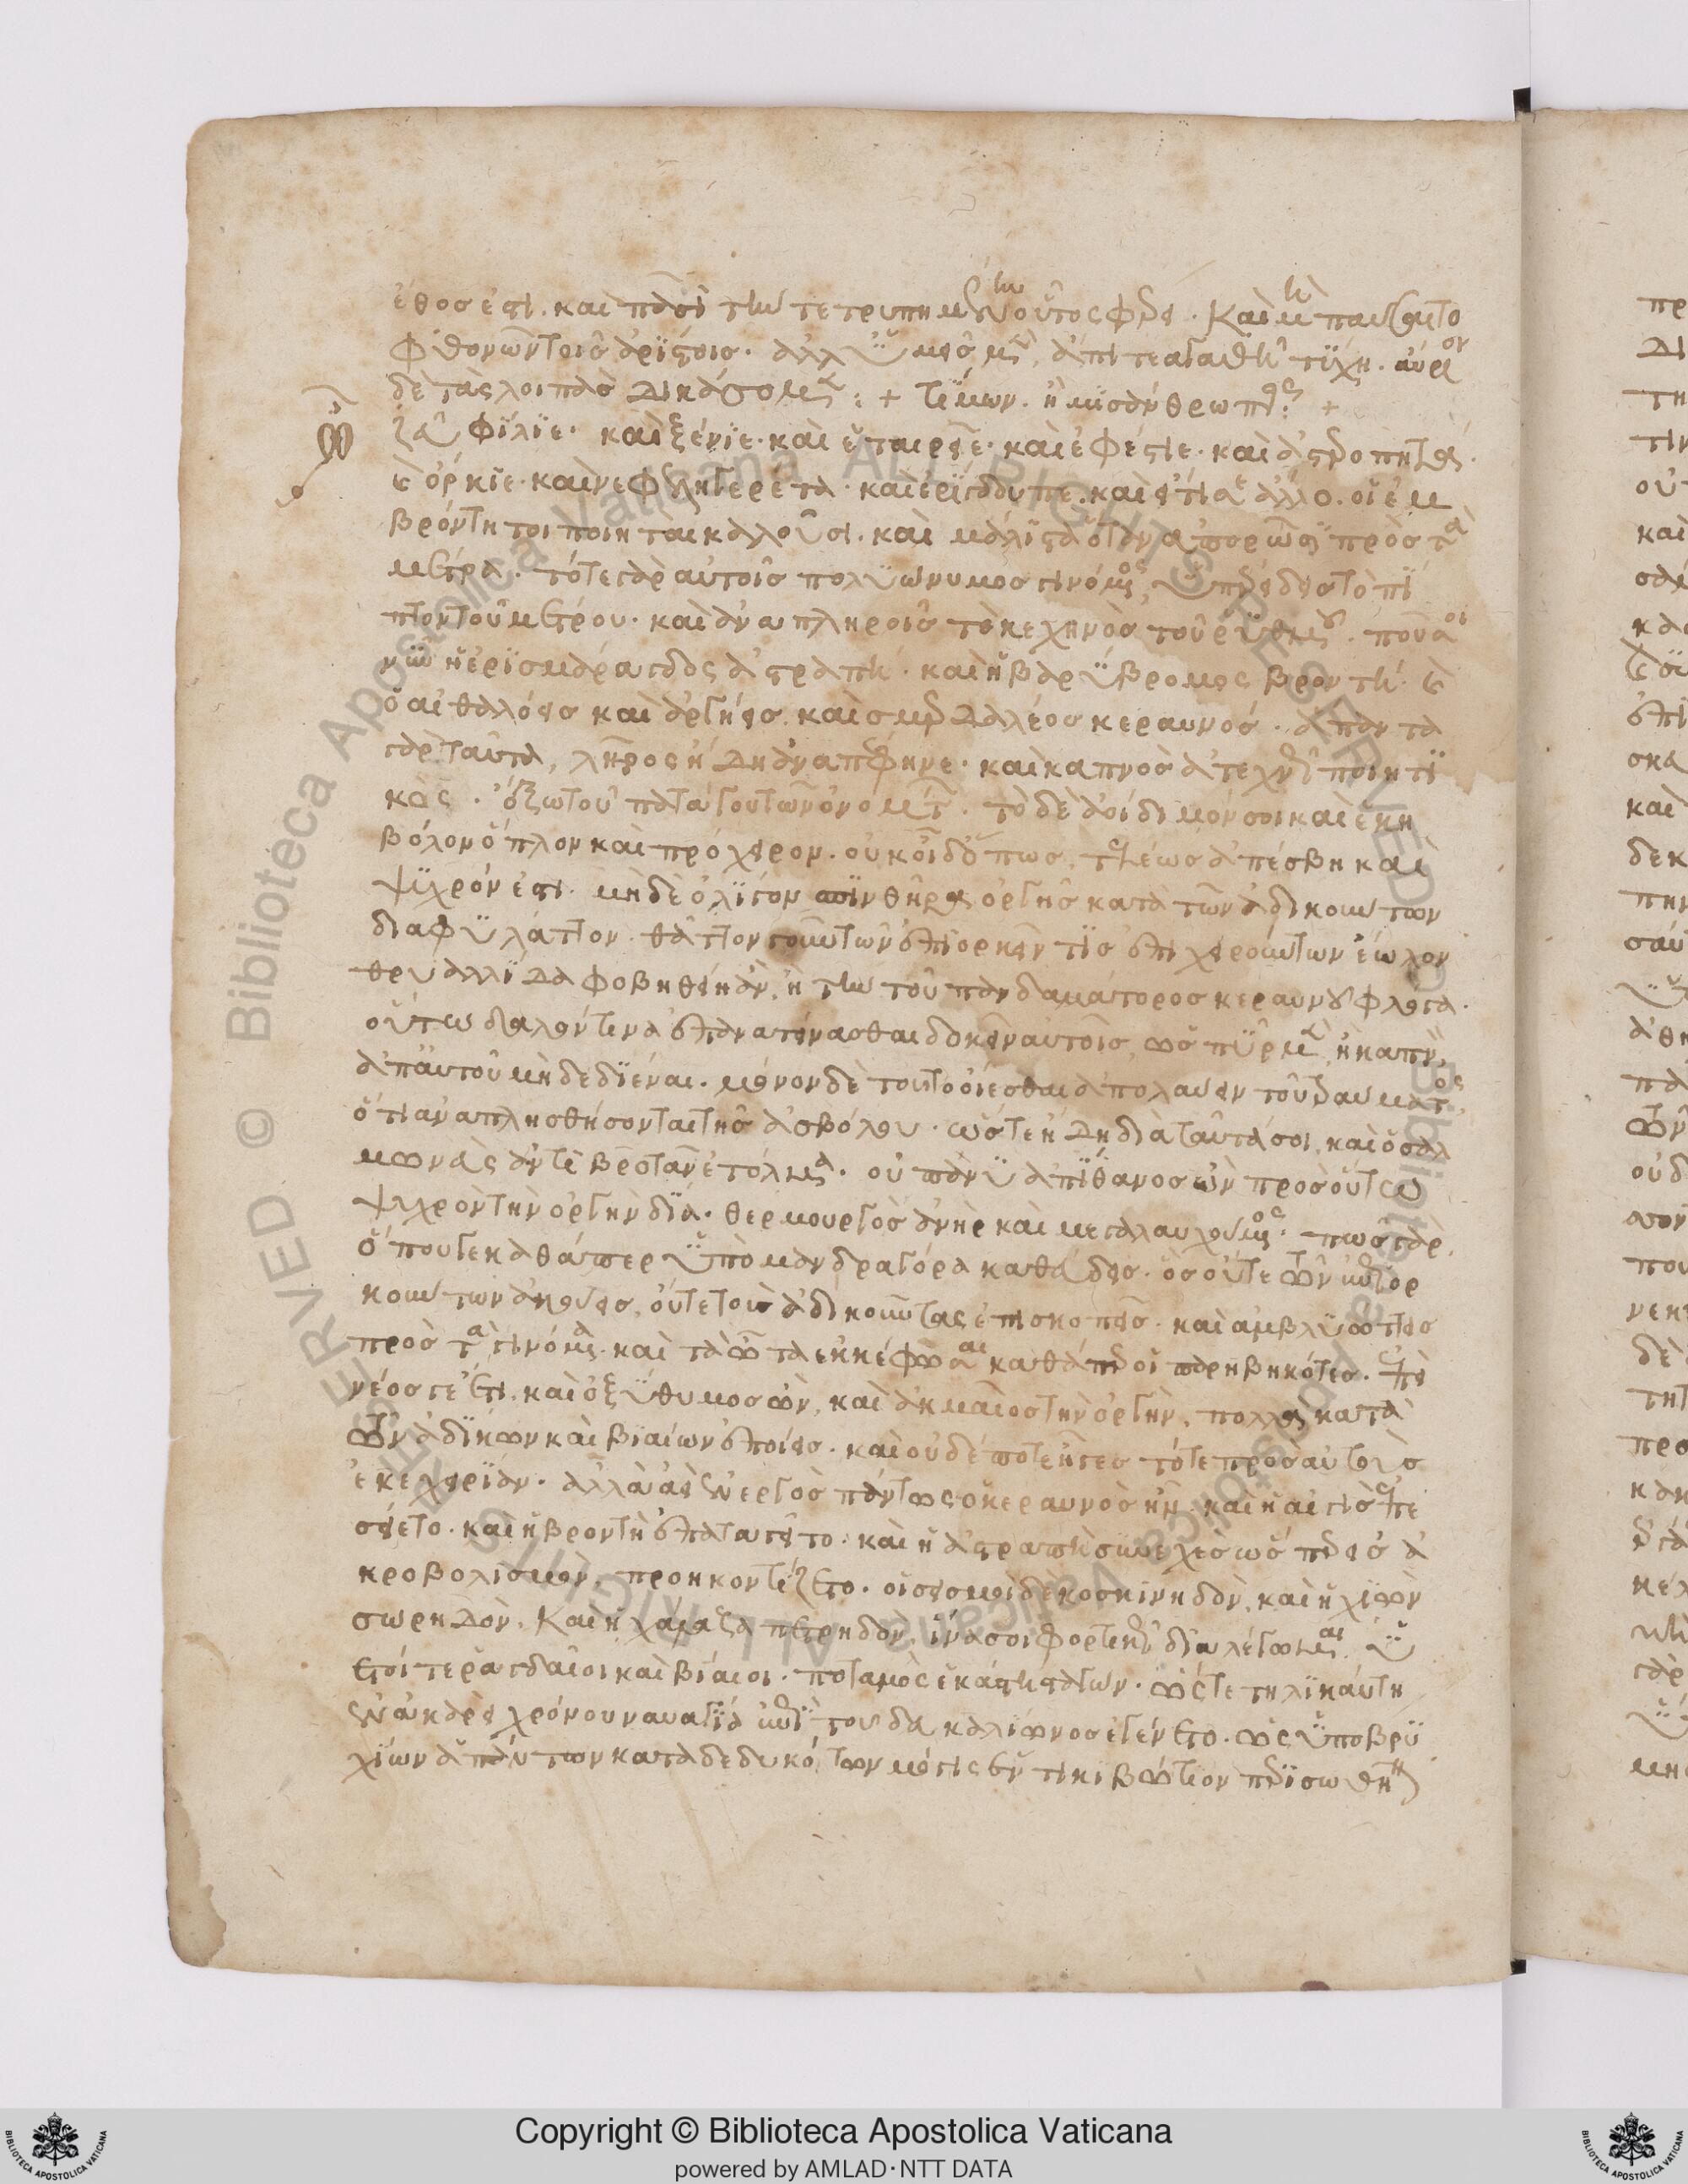 ἔθος ἐστι. καὶ πᾶσι τὴν τετρυπημένην οὗτος φέρει. Καὶ μὴ παύσαιτο
φθονῶν τοῖς ἀρίστοις. ἀλλ' ἡμεῖς μὲν, ἀπίτε ἀγαθῆ τύχη. αὔριον
δὲ τὰς λοιπὰς δικάσομεν :+ Τίμων. ἢ μισάνθρωπος +
ὦ ζεῦ φίλιε. καὶ ξένιε. καὶ ἑταιρεῖε. καὶ ἐφέστιε. καὶ ἀστεροπητά.
καὶ ὅρκιε. καὶ νεφεληγερέτα. καὶ ἐρίγδουπε. καὶ εἴ τι σε ἄλλο. οἱ ἐμ
βρόντητοι ποιηταὶ καλοῦσι. καὶ μάλιστα ὅταν ἀπορῶσι πρὸς τὰ
μέτρα. τότε γὰρ αὐτοῖς πολυώνυμος γινόμενος, ὑπερείδεις τὸ πί
πτον τοῦ μέτρου. καὶ ἀναπληροῖς τὸ κεχηνὸς τοῦ ῥυθμοῦ. ποῦ σοι
νῦν ἡ ἐρισμάραγδος ἀστραπή. καὶ ἡ βαρύβρομος βροντή. καὶ
ὁ αἰθαλόεις καὶ ἀργήεις. καὶ σμερδαλέος κεραυνός. ἅπαντα
γὰρ ταῦτα, λῆρος ἤδη ἀναπέφηνε. καὶ καπνὸς ἀτεχνῶς ποιητι
κὸς. ἔξω τοῦ πατάγου τῶν ὀνομάτων. τὸ δὲ ἀοίδιμόν σοι καὶ ἑκη
βόλον ὅπλον καὶ πρόχειρον. οὐκ οἶδ' ὅπως, τελέως ἀπέσβη καὶ
ψυχρόν ἐστι. μηδὲ ὀλίγον σπινθῆρα ὀργῆς κατὰ τῶν ἀδικούντων
διαφυλάττον. θᾶττον γοῦν τῶν ἐπιορκεῖν τις ἐπιχειρούντων ἕωλον
θρυαλλίδα φοβηθείη ἂν, ἢ τὴν τοῦ πανδαμάτορος κεραυνοῦ φλόγα.
οὕτω δαλόν τινα ἐπανατείνασθαι δοκεῖν αὐτοῖς, ὡς πῦρ μὲν ἢ καπνὸν
ἀπ' αὐτοῦ μὴ δεδιέναι. μόνον δὲ τοῦτο οἴεσθαι ἀπολαύειν τοῦ τραύματος,
ὅτι ἀναπλησθήσονται τῆς ἀσβόλου. ὥστε ἤδη διὰ ταῦτά σοι, καὶ ὁ σαλ
μωνεὺς ἀντιβροντᾶν ἐτόλμα. οὐ πάνυ ἀπίθανος ὢν πρὸς οὕτω
ψυχρὸν τὴν ὀργὴν δία. θερμουργὸς ἀνὴρ καὶ μεγαλαυχούμενος. πῶς γὰρ.
ὅπου γε καθάπερ ὑπὸ μανδραγόρα καθεύδεις. ὃς οὔτε τῶν ἐπιορ
κούντων ἀκούεις, οὔτε τοὺς ἀδικοῦντας ἐπισκοπεῖς. καὶ ἀμβλυώττεις
πρὸς τὰ γινόμενα. καὶ τὰ ὦτα ἐκκεκώφωσαι καθάπερ οἱ παρηβηκότες. ἐπεὶ
νέος γε ἔτι. καὶ ὀξύθυμος ὢν, καὶ ἀκμαῖος τὴν ὀργὴν, πολλὰ κατὰ
τῶν ἀδίκων καὶ βιαίων ἐποίεις. καὶ οὐδέποτε ἦγες τότε πρὸς αὐτοὺς
ἐκεχειρίαν. ἀλλὰ ἀεὶ ἐνεργὸς πάντως ὁ κεραυνὸς ἦν. καὶ ἡ αἰγὶς ἐπε
σείετο. καὶ ἡ βροντὴ ἐπαταγεῖτο. καὶ ἡ ἀστραπὴ συνεχὲς ὥσπερ εἰς ἀ
κροβολισμὸν, προηκοντίζετο. οἱ σεισμοὶ δὲ κοσκινηδὸν, καὶ ἡ χιὼν
σωρηδὸν. Καὶ ἡ χάλαζα πετρηδὸν. ἵνα σοι φορτικῶς διαλέγωμαι. ὑ
ετοί τε ῥαγδαῖοι καὶ βίαιοι. ποταμὸς ἑκάστη σταγών. ὥστε τηλικαύτη
ἐν ἀκαρεῖ χρόνου ναυαγία ἐπὶ τοῦ δευκαλίωνος ἐγένετο. ὡς ὑποβρυ
χίων ἁπάντων καταδεδυκότων μόγις ἕν τι κιβώτιον περισωθῆναι